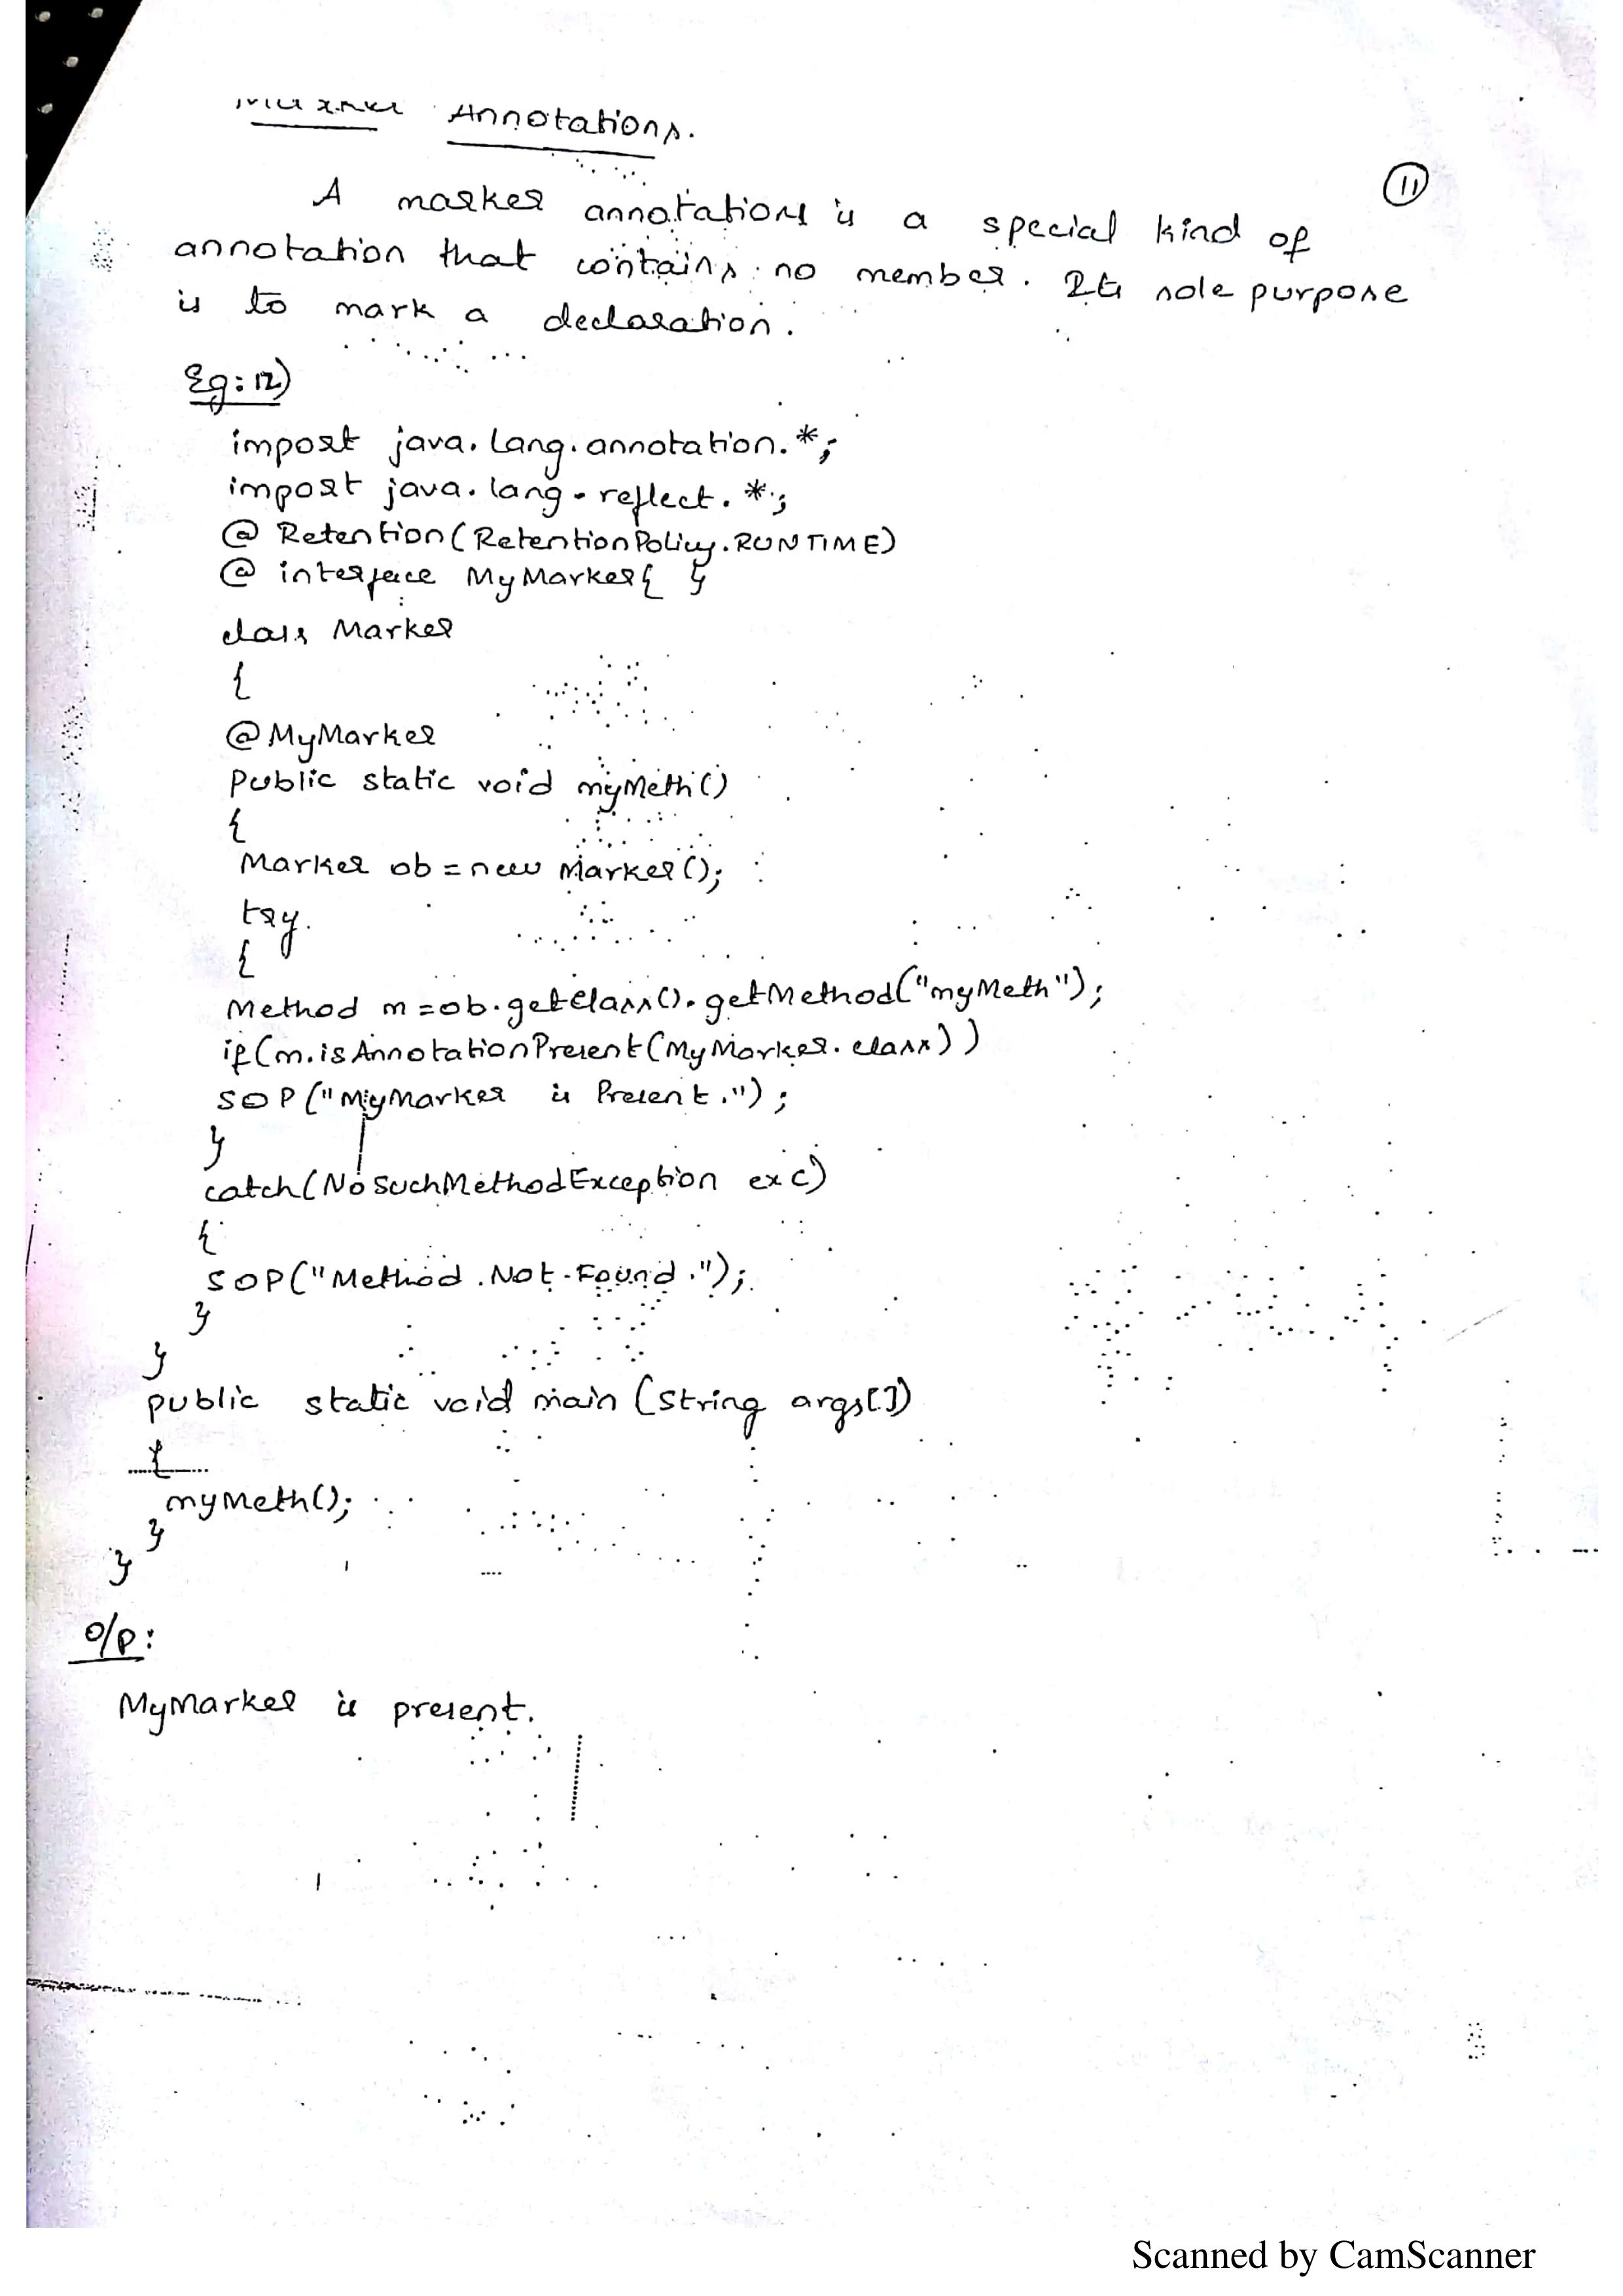 Marker Annotations.
11
A marker annotations is a special kind of
annotation that contains no member. Its sole purpose
is to mark a declaration.
Eg: 12)
import java.lang.annotation.*;
import java.lang.reflect.*;
@ Retention(RetentionPolicy.RUNTIME)
@ interface MyMarker{ }
class Marker
{
@MyMarker
Public static void myMeth()
{
Marker ob = new Marker();
try
{
Method m = ob.getClass().getMethod("myMeth");
if(m.isAnnotationPresent(MyMarker.class))
SOP("MyMarker is Present.");
}
catch(NoSuchMethodException exc)
{
SOP("Method Not Found.");
}
}
public static void main (String args[])
{
myMeth();
}
}
O/P:
MyMarker is present.
Scanned by CamScanner